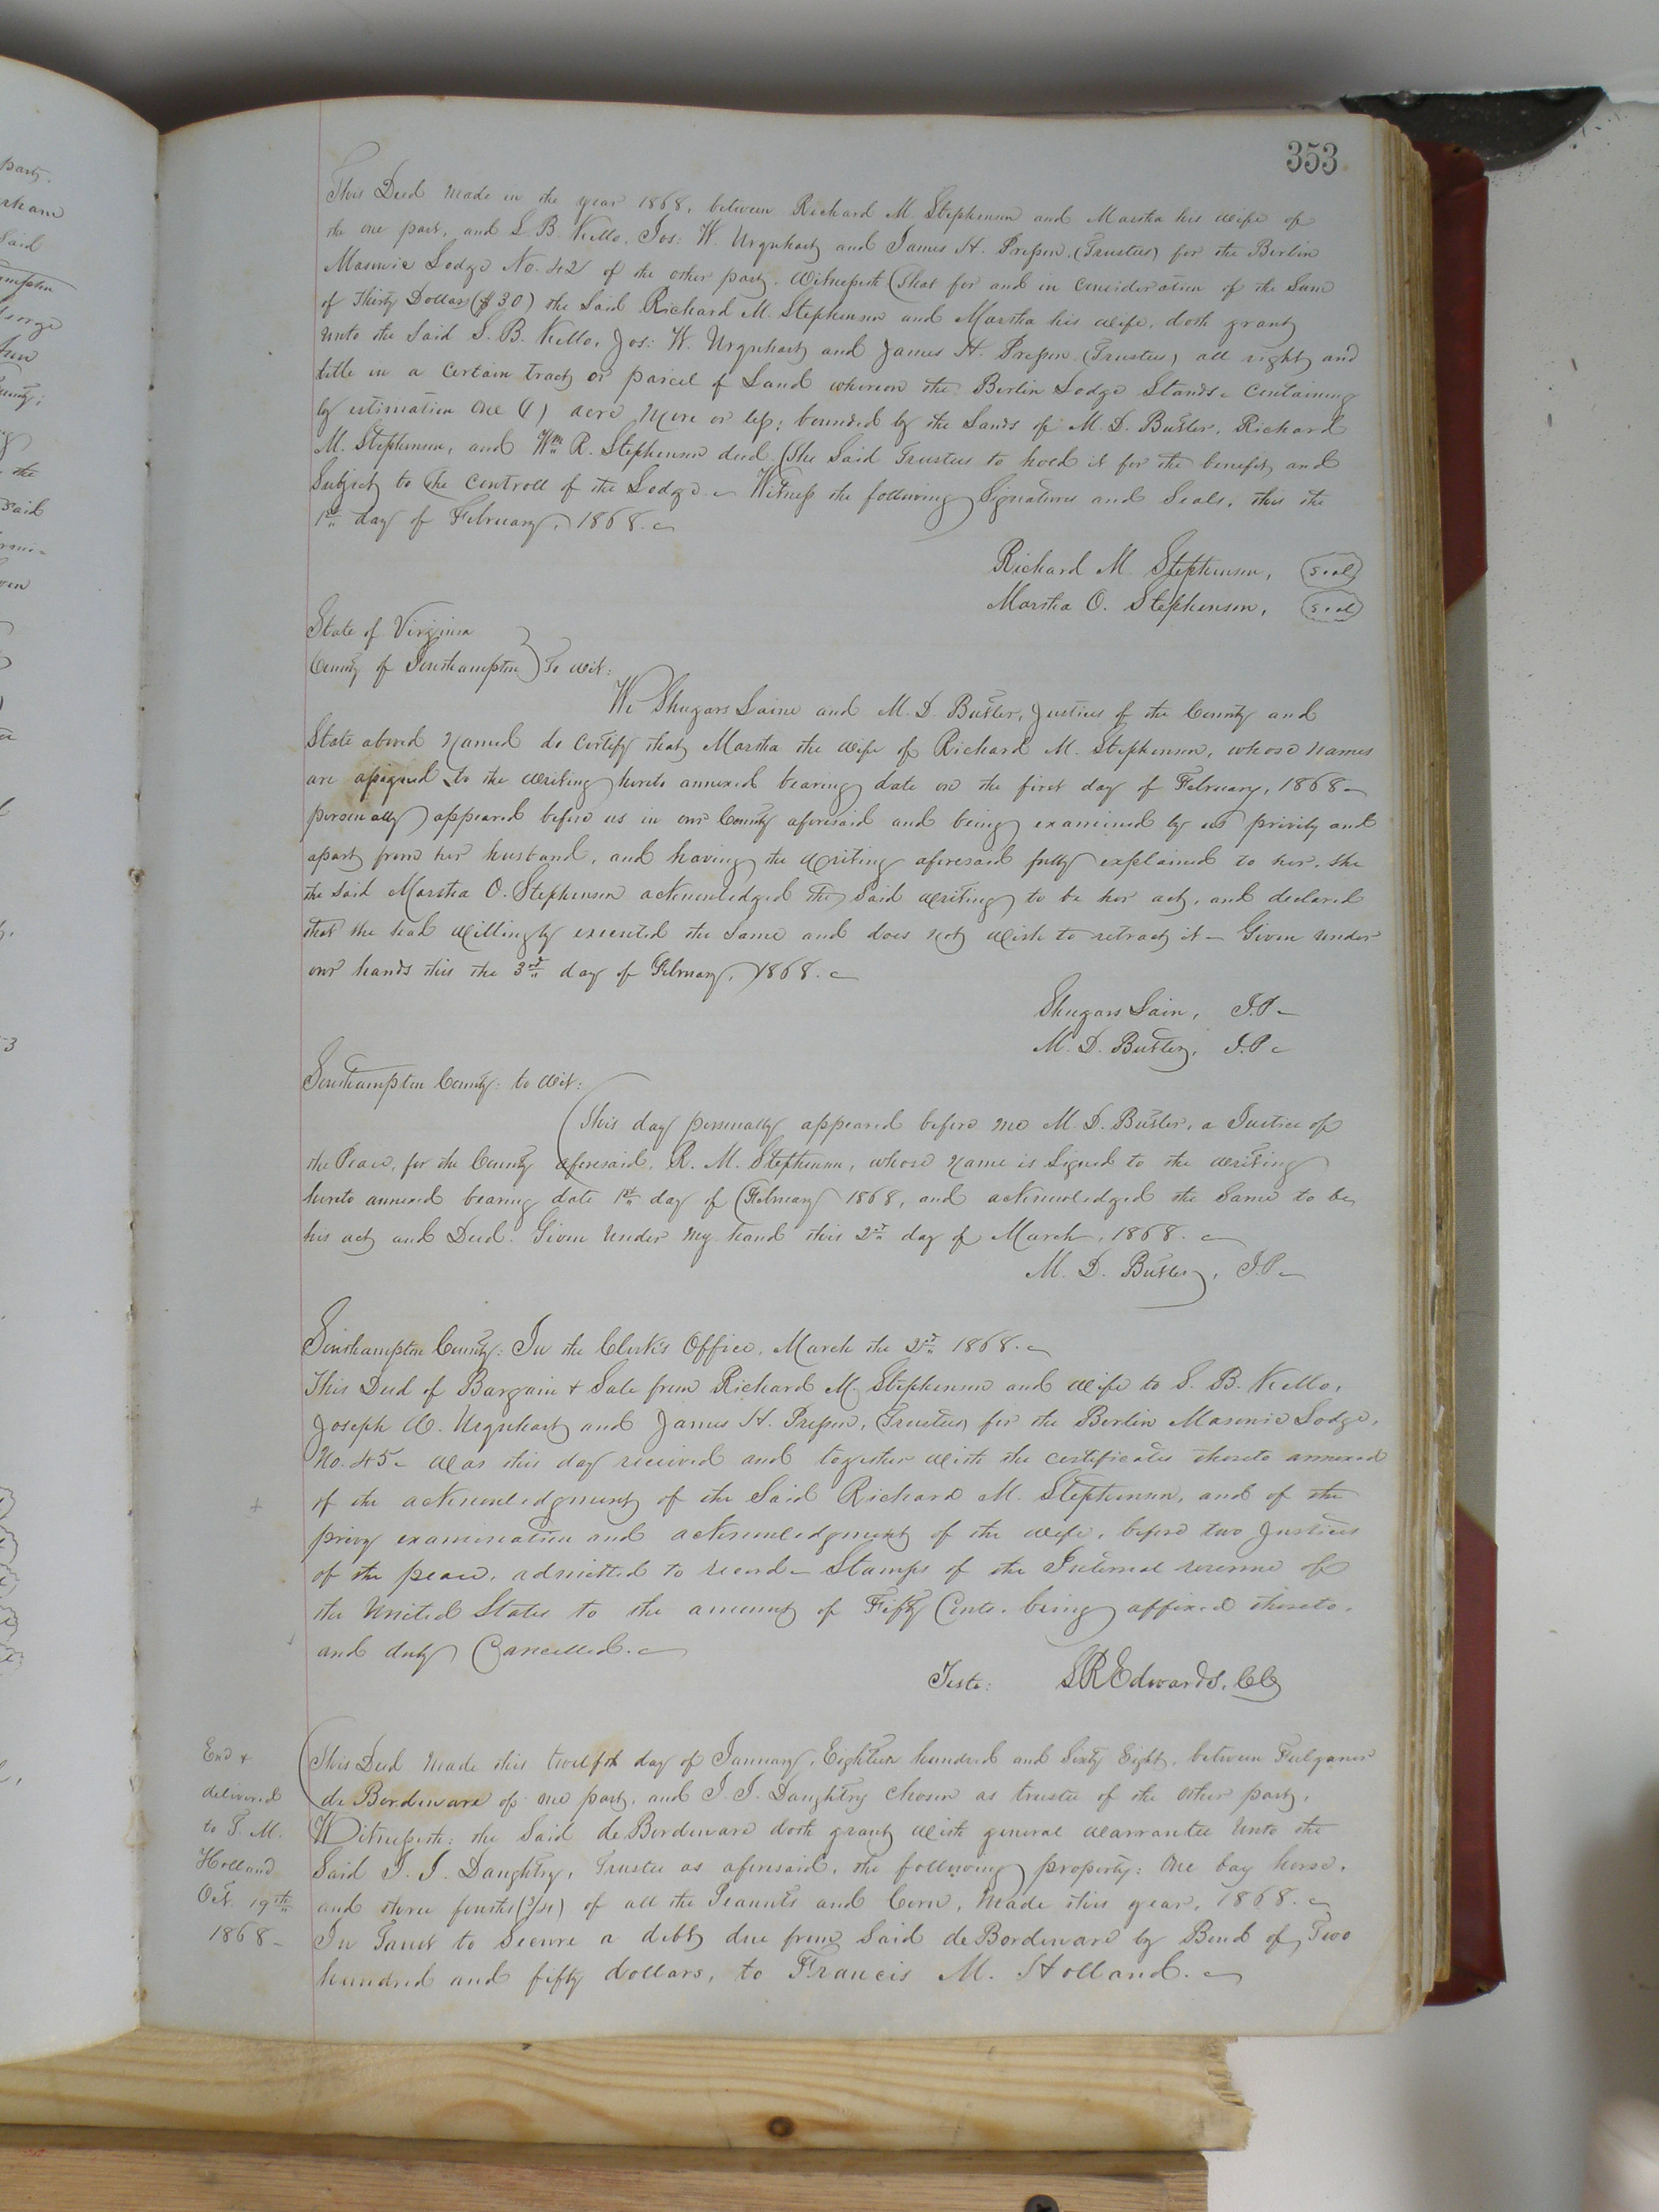 353
This Deed made in the year 1868, between Richard M. Stephenson and Martha his wife of
the one part, and S. B. Kello, Jos: W. Urquhart and James H. Presson (Trustees) for the Berlin
Masonic Lodge No. 42 of the other party. Witnesseth (That for and in consideration of the Sum
of Thirty Dollars ($30) the Said Richard M. Stephenson and Martha his wife, doth grant
unto the Said S. B. Kello, Jos: W. Urquhart and James H. Presson (Trustees) all right and
title in a certain tract or parcel of Land whereon the Berlin Lodge Stands - containing
by estimation One (1) acre, more or less; bounded by the Lands of M. D. Butler, Richard
M. Stephenson, and Wm. R. Stephenson decd. (The Said Trustees to hold it for the benefit and
Subject to the controll of the Lodge. - Witness the following Signatures and Seals, this the
1st day of February, 1868. -
Richard M. Stephenson, Seal
Martha O. Stephenson, Seal
State of Virginia
County of Southampton } To wit:
We Shugars Laine and M. D. Butler, Justices of the County and
State above named do certify that Martha the wife of Richard M. Stephenson, whose names
are assigned to the writing hereto annexed bearing date on the first day of February, 1868 -
personally appeared before us in our County aforesaid and being examined by us privily and
apart from her husband, and having the writing aforesaid fully explained to her, she
the said Martha O. Stephenson acknowledged the said writing to be her act, and declared
that she had willingly executed the same and does not wish to retract it - Given under
our hands this the 3rd day of February, 1868. -
Shugars Lain, J.P. -
M. D. Butler, J.P. -
Southampton County: to wit:
This day personally appeared before me M. D. Butler, a Justice of
the Peace, for the County aforesaid, R. M. Stephenson, whose name is Signed to the writing
hereto annexed bearing date 1st day of February 1868, and acknowledged the Same to be
his act and Deed. Given under my hand this 2nd day of March, 1868. -
M. D. Butler, J.P. -
Southampton County: In the Clerk's Office, March the 2nd 1868. -
This Deed of Bargain & Sale from Richard M. Stephenson and wife to S. B. Kello,
Joseph W. Urquhart and James H. Presson, (Trustees) for the Berlin Masonic Lodge,
No. 45 - was this day received and together with the certificates thereto annexed
of the acknowledgment of the Said Richard M. Stephenson, and of the
privy examination and acknowledgment of the wife, before two Justices
of the peace, admitted to record - Stamps of the Internal revenue of
the United States to the amount of Fifty Cents, being affixed thereto,
and duly Cancelled. -
Teste: LREdwards, CC
This Deed made this twelfth day of January, Eighteen hundred and Sixty Eight, between
de Bordenave of one part, and J. J. Daughtry chosen as trustee of the other party,
Witnesseth: the Said de Bordenave doth grant with general warrantee unto the
Said J. J. Daughtry, Trustee as aforesaid, the following property: One bay horse,
and three fourths (3/4) of all the Peanuts and Corn, made this year, 1868. -
In Trust to Secure a debt due from Said de Bordenave by Bond of Two
hundred and fifty dollars, to Francis M. Holland. -
End &
delivered
to F. M.
Holland
Oct. 19th
1868 -